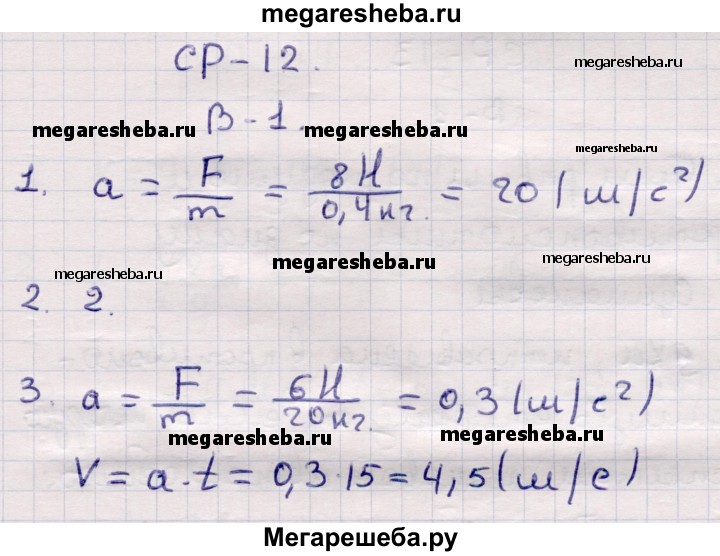 megaresheba.ru
СР-12.
megaresheba.ru
В-1.
megaresheba.ru
megaresheba.ru
1. a = F/m = 8Н/0,4кг. = 20 (м/с²)
megaresheba.ru
megaresheba.ru
megaresheba.ru
2. 2.
3. a = F/m = 6Н/20кг. = 0,3 (м/с²)
megaresheba.ru
megaresheba.ru
V = a·t = 0,3·15 = 4,5 (м/с)
Мегарешеба.ру